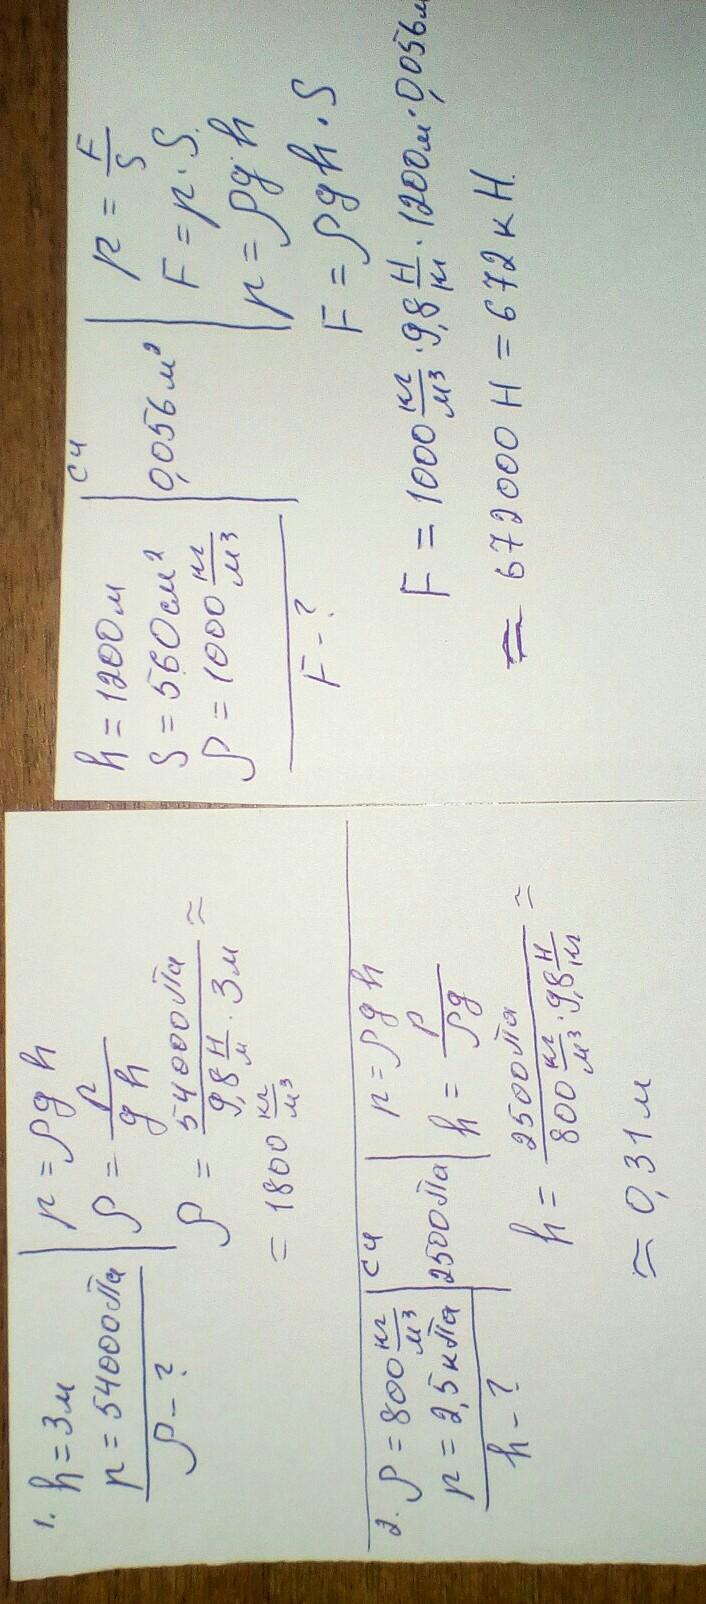 1. h = 3 м
p = 54000 Па
ρ - ?
p = ρgh
ρ = p/gh
ρ = 54000 Па / 9,8 Н/м · 3 м ≈
= 1800 кг/м³
2. ρ = 800 кг/м³
p = 2,5 кПа
h - ?
СИ
2500 Па
p = ρgh
h = p/ρg
h = 2500 Па / 800 кг/м³ · 9,8 Н/кг ≈
≈ 0,31 м
h = 1200 м
S = 560 см²
ρ = 1000 кг/м³
F - ?
СИ
0,056 м²
p = F/S
F = p · S
p = ρgh
F = ρgh · S
F = 1000 кг/м³ · 9,8 Н/кг · 1200 м · 0,056 м
= 672000 Н = 672 кН.